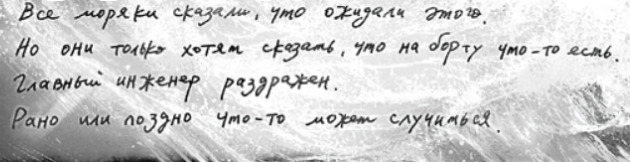 Все моряки сказали, что ожидали этого.
Но они только хотят сказать, что на борту что-то есть.
Главный инженер раздражен.
Рано или поздно что-то может случиться.